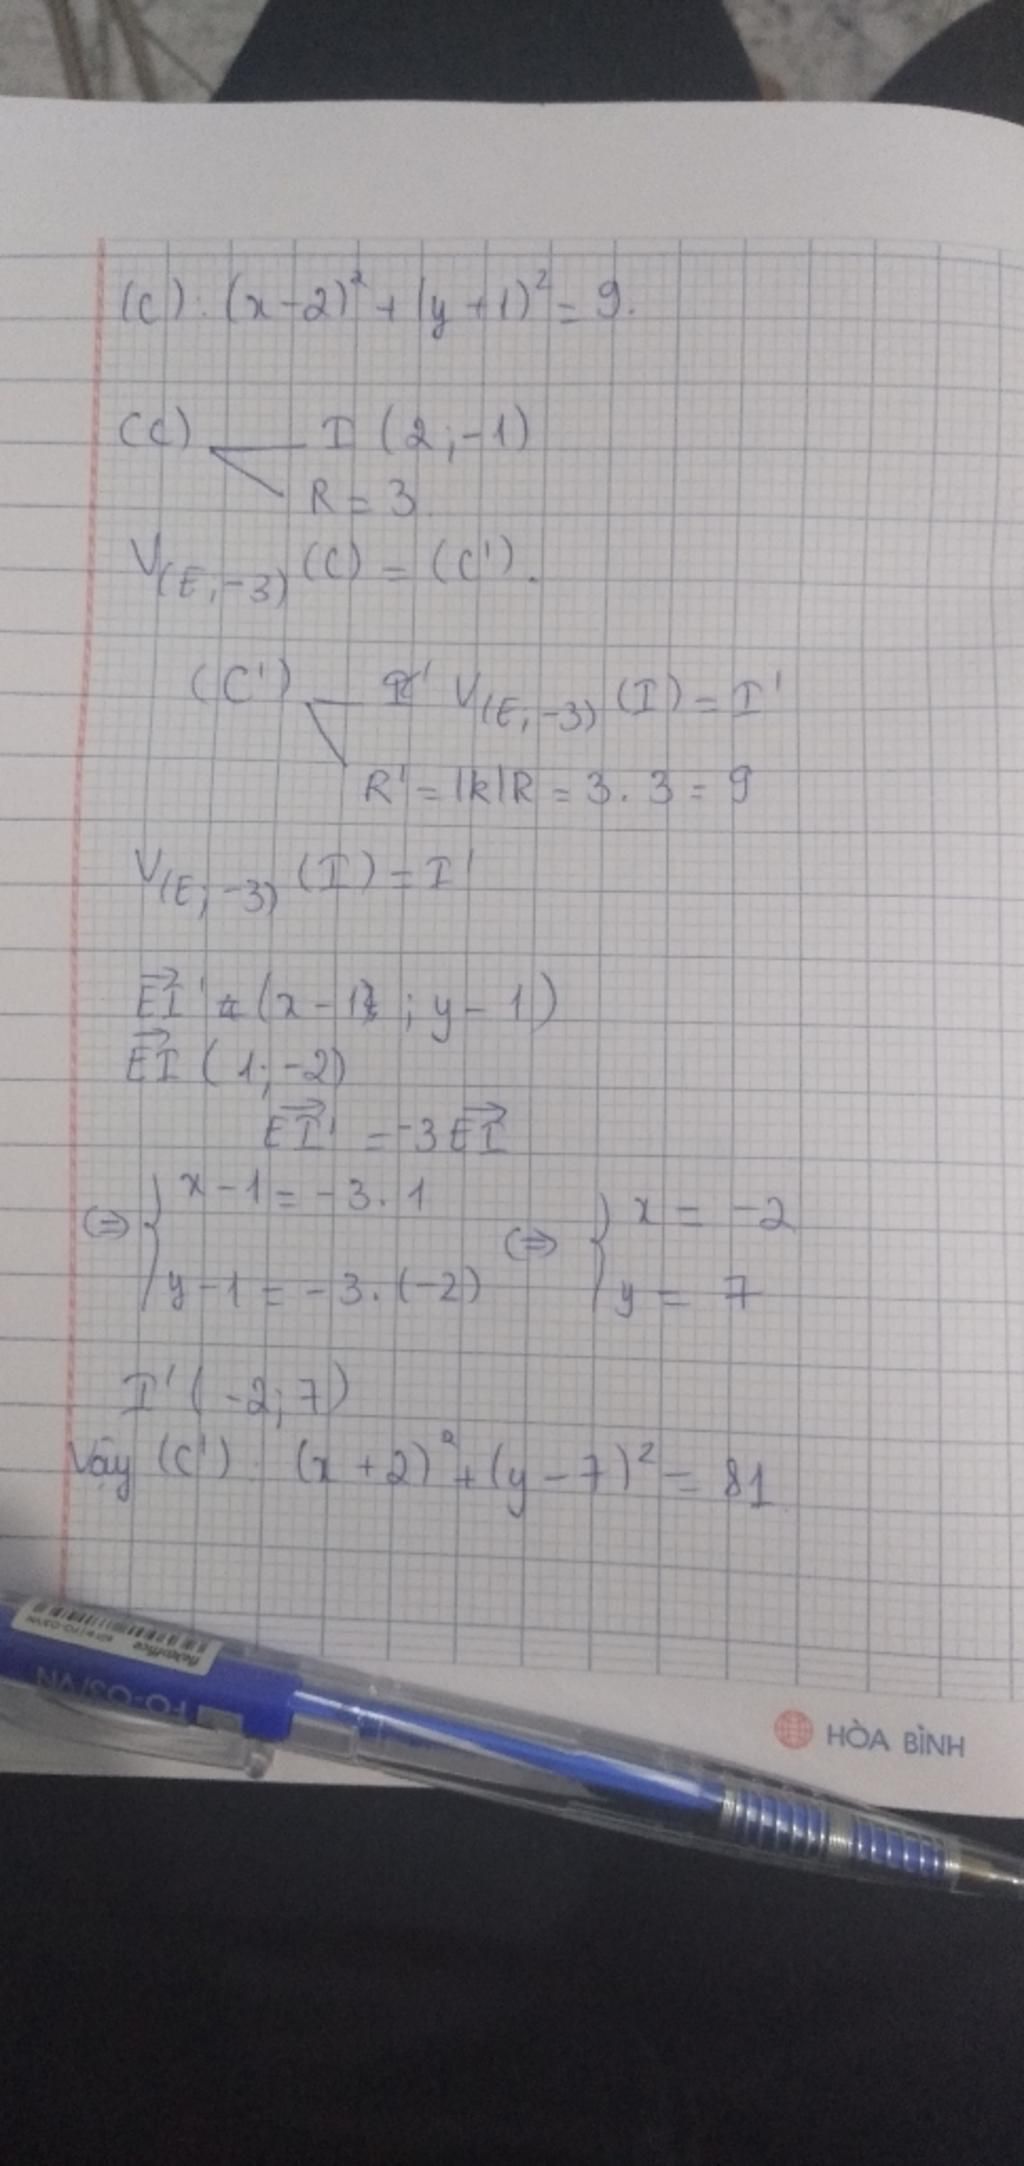 (C): (x-2)² + (y+1)² = 9.
(C) I (2;-1)
R = 3
V(E;-3) (C) = (C').
(C') V(E;-3) (I) = I'
R' = |k|R = 3.3 = 9
V(E;-3) (I) = I'
EI' (x-1; y-1)
EI (1;-2)
EI' = -3EI
⇔ { x-1 = -3.1 ⇔ { x = -2
y-1 = -3.(-2) y = 7
I' (-2;7)
Vậy (C'): (x+2)² + (y-7)² = 81
FO-03/VN
HÒA BÌNH